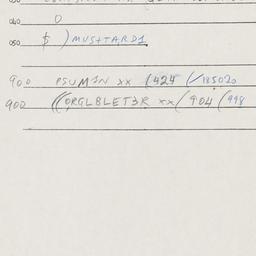 040 O
050 $ ) MUSTARD1
900 PSUM1N xx (424 (/185020
900 ((ORGLBLET3R xx/ 904 (998